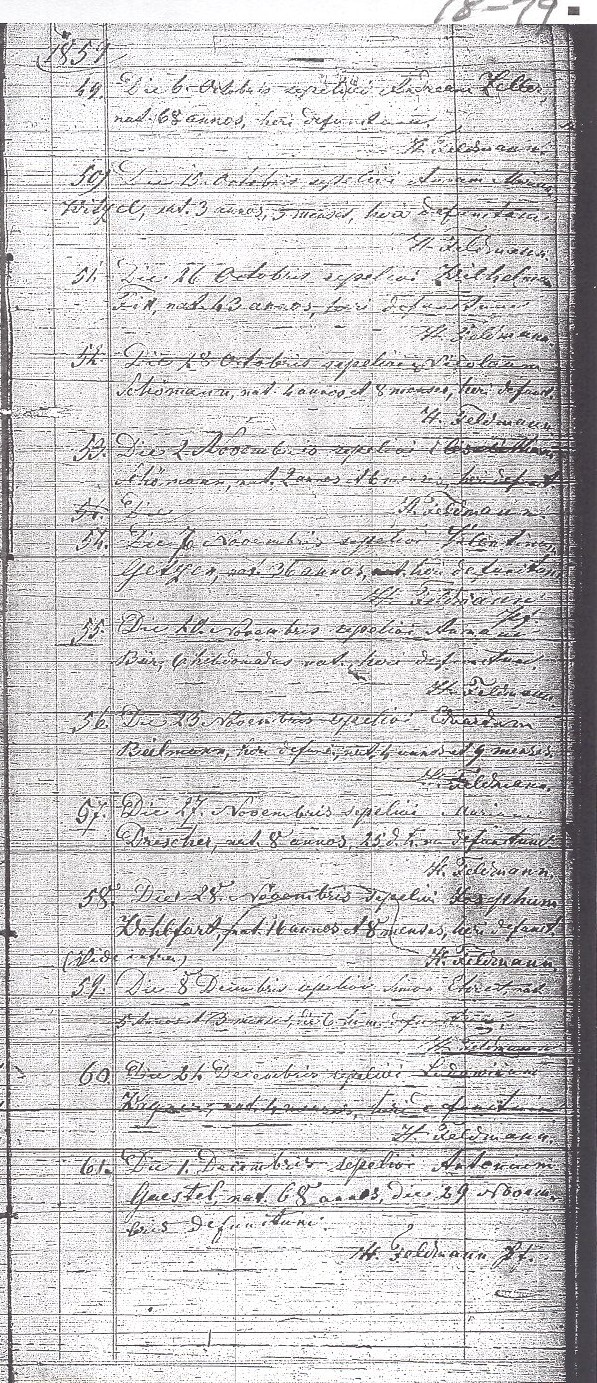 18-79
1859
49. Die 6. Octobris sepelivi Andream Keller,
nat. 68 annos, heri defunctum.
H. Feldmann.
50) Die 15. Octobris sepelivi Annam Mariam
Witzel, nat. 3 annos, 5 menses, heri defunctam.
H. Feldmann.
51. Die 26 Octobris sepelivi Wilhelm
Fix, nat. 43 annos, heri defunctum
H. Feldmann.
52. Die 28 Octobris sepelivi Nicolaum
Schömann, nat. 4 annos et 8 menses, heri defunct.
H. Feldmann
53. Die 2 Novembris sepelivi Elisabetham
Schömann, nat. 2 annos et 6 menses, heri defunct
54. Die
H. Feldmann.
54. Die Novembris sepelivi Valentinum
nat. 36 annos, heri defunctum
H. Feldmann
55. Die 20. Novembris sepelivi Annam
Bär, 6 hebdomadas nat., heri defunctam.
H. Feldmann.
56. Die 25 Novembris sepelivi Eduardum
Beilmann, heri defunct, nat. 4 annos et 9 menses.
H. Feldmann.
57. Die 27. Novembris sepelivi Mariam
Drescher, nat. 8 annos, 25 d. h. m. defunctam
H. Feldmann.
58. Die 28. Novembris sepelivi Josephum
Wohlfart, nat. 16 annos et 8 menses, heri defunct.
(Vide infra)
H. Feldmann.
59. Die 8 Decembris sepelivi Ehret, nat
5 annos et 3 menses, die 6 h. m. defunctum.
H. Feldmann
60. Die 24 Decembris sepelivi Ludovicum
nat. 4 menses, heri defunctum
H. Feldmann.
61. Die 1. Decembris sepelivi Antonium
Gaestel, nat. 68 annos, die 29 Novem-
bris defunctum.
H. Feldmann Pt.